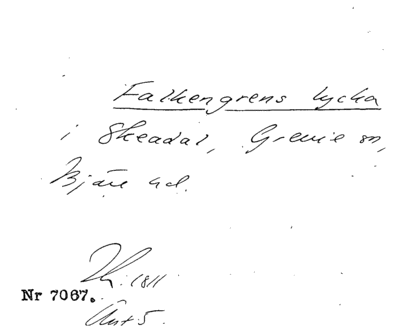 Falkengrens lycka
i Skeadal, Grevie sn,
Bjäre hd.
1811
Nr 7067.